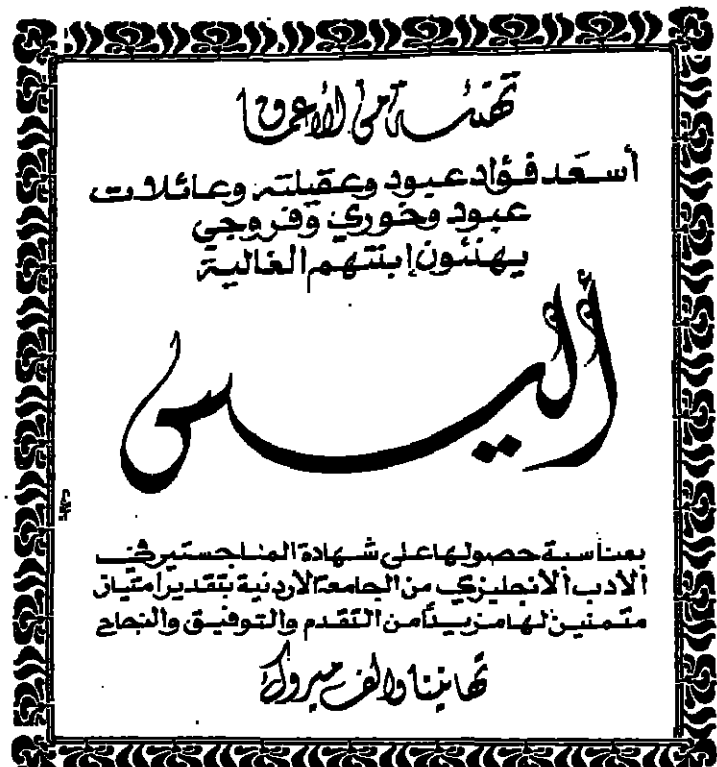 تهنئة من الأعماق
أسعد فؤاد عبود وعقيلته وعائلات
عبود وخوري وفروجي
يهنئون إبنتهم الغالية
أليس
بمناسبة حصولها على شهادة الماجستير في
الأدب الانجليزي من الجامعة الاردنية بتقدير امتياز
متمنين لها مزيداً من التقدم والتوفيق والنجاح
تهانينا والف مبروك